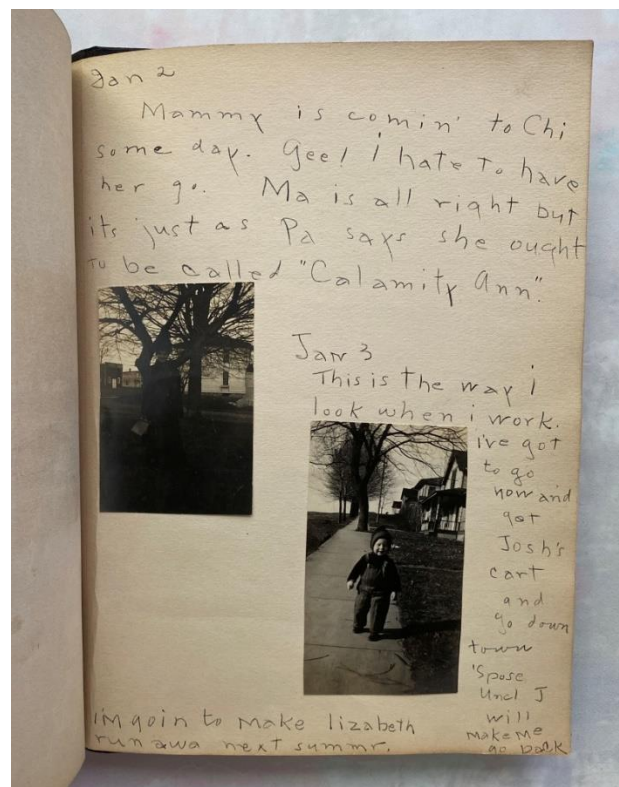 Jan 2
Mammy is comin' to Chi
some day. Gee! I hate to have
her go. Ma is all right but
its just as Pa says she ought
to be called "Calamity Ann".
Jan 3
This is the way i
look when i work.
I've got
to go
now and
get
Josh's
cart
and
go down
town
'Spose
Uncl J
will
make me
go back
i'm goin to make lizabeth
run awa next summr.